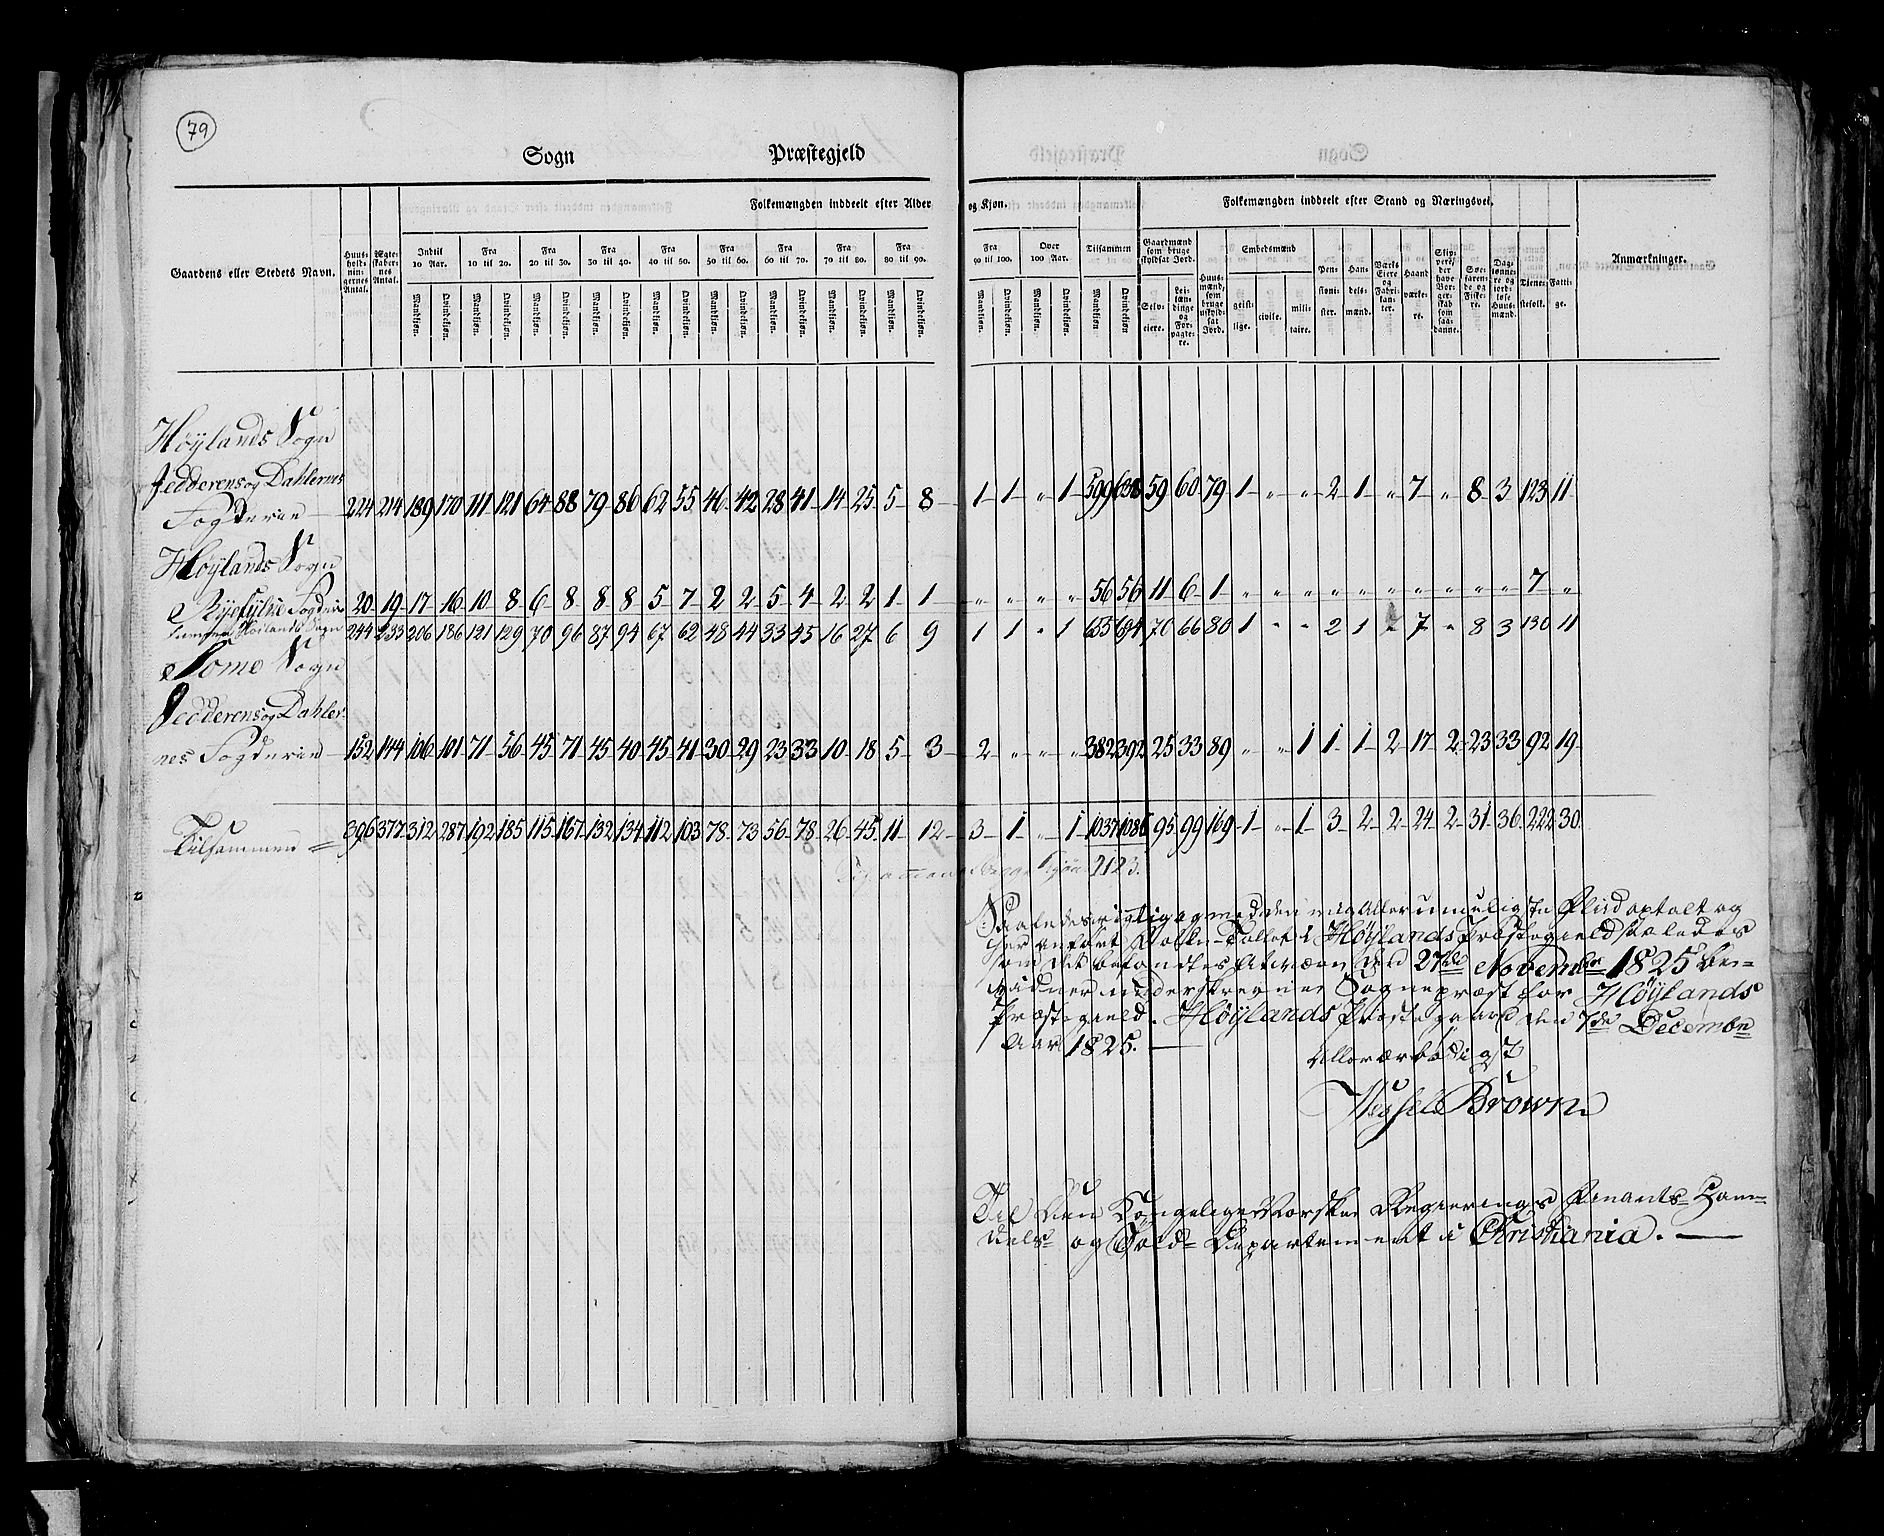 79
Sogn Præstegjeld
Folkemængden inddeelt efter Alder og Kjøn.
Folkemængden inddeelt efter Stand og Næringsvei.
Gaardens eller Stedets Navn.
Huusholdningernes Antal.
Ægteskabernes Antal.
Indtil 10 Aar.
Fra 10 til 20.
Fra 20 til 30.
Fra 30 til 40.
Fra 40 til 50.
Fra 50 til 60.
Fra 60 til 70.
Fra 70 til 80.
Fra 80 til 90.
Fra 90 til 100.
Over 100 Aar.
Tilsammen
Mandkjøn. Qvindekjøn. Mandkjøn. Qvindekjøn. Mandkjøn. Qvindekjøn. Mandkjøn. Qvindekjøn. Mandkjøn. Qvindekjøn. Mandkjøn. Qvindekjøn. Mandkjøn. Qvindekjøn. Mandkjøn. Qvindekjøn. Mandkjøn. Qvindekjøn. Mandkjøn. Qvindekjøn. Mandkjøn. Qvindekjøn. Mandkjøn. Qvindekjøn.
Gaardmænd som bruge skyldsat Jord.
Selveiere.
Leilændinge og Forpagtere.
Huusmænd, som bruge uskyldsat Jord.
Embedsmænd
geistlige.
civile.
militaire.
Pensionister.
Handelsmænd.
Værks Eiere og Fabrikanter.
Haandværkere.
Søefarende og Fiskere.
Tienestefolk.
Fattige.
Anmærkninger.
Höylands Sogn
Jedderens og Dahlernes
Fogderie 224 214 189 170 111 121 64 88 79 86 62 55 46 42 28 41 14 25 5 8 1 1 " 1 599 638 59 60 79 1 " " 2 1 " 7 " 8 3 123 11
Höylands Sogn
Ryefylke Fogderie 20 19 17 16 10 8 6 8 8 8 5 7 2 2 5 4 2 2 1 1 " " " " 56 56 11 6 1 " " " " " " " " " " 7 "
Höilands Sogn 244 233 206 186 121 129 70 96 87 94 67 62 48 44 33 45 16 27 6 9 1 1 " 1 655 694 70 66 80 1 " " 2 1 7 " 8 3 130 11
Some Sogn
Jedderens og Dahlernes
Fogderie 152 144 106 101 71 56 45 71 45 40 45 41 30 29 23 33 10 18 5 3 2 " " " 382 392 25 33 89 " " 1 1 1 2 17 2 23 33 92 19
Tilsammen 396 377 312 287 192 185 115 167 132 134 112 103 78 73 56 78 26 45 11 12 3 1 " 1 1037 1086 95 99 169 1 " 1 3 2 2 24 2 31 36 222 30
Tilsammen begge Kjøn 2123.
Saaledes rigtig og med den mig allerunderdanigste Fliid optalt og
her anført Folke-Tallet i Höylands Præstegield saaledes
som det befandtes at være den 27de November 1825 bevidner
underskrevne Sognepræst for Höylands
Præstegield. Höylands Præstegaard den 7de December
Aar 1825.
Allerærbødigst
Wessel Brown
Til Den Kongelige Norske Regierings Finants- Handels-
og Told- Departement i Christiania.